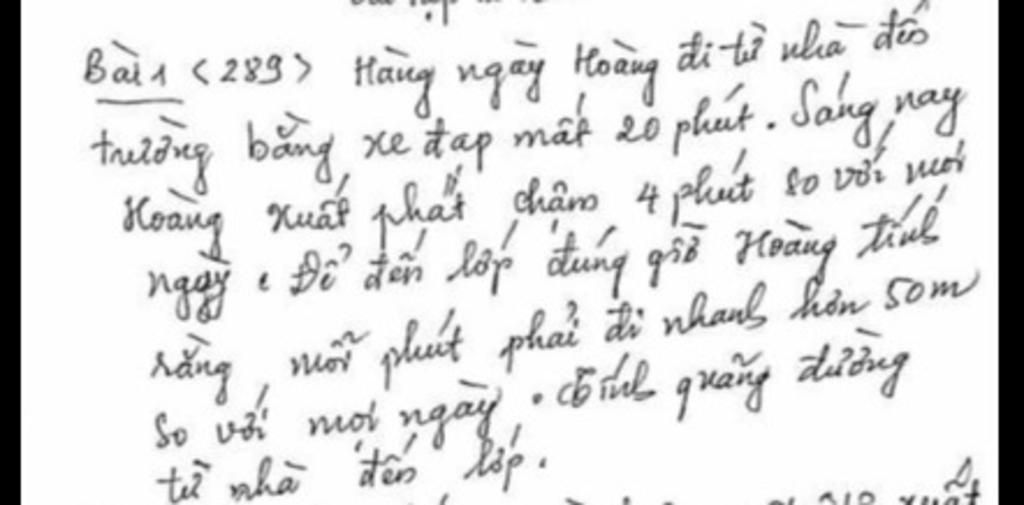 Bài 1 <289> Hàng ngày Hoàng đi từ nhà đến
trường bằng xe đạp mất 20 phút. Sáng nay
Hoàng xuất phát chậm 4 phút so với mọi
ngày. Để đến lớp đúng giờ Hoàng tính
rằng mỗi phút phải đi nhanh hơn 50m
so với mọi ngày. Tính quãng đường
từ nhà đến lớp.
xuất